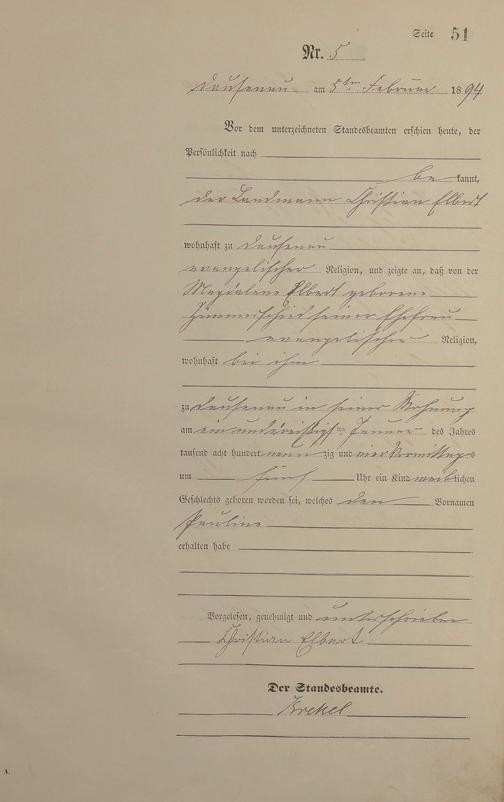 Seite 51
Nr. 5
Dausenau am 5ten Februar 1894
Vor dem unterzeichneten Standesbeamten erschien heute, der
Persönlichkeit nach
be kannt,
der Landmann Christian Elbert
wohnhaft zu Dausenau
evangelischer Religion, und zeigte an, daß von der
Magdalene Elbert geborene
seiner Ehefrau
evangelischer Religion,
wohnhaft bei ihm
zu Dausenau in seiner Wohnung
am ein und dreißigsten Januar des Jahres
tausend acht hundert neun zig und vier Vormittags
um fünf Uhr ein Kind weiblichen
Geschlechts geboren worden sei, welches den Vornamen
Pauline
erhalten habe
Vorgelesen, genehmigt und unterschrieben
Christian Elbert
Der Standesbeamte.
Krekel
A.